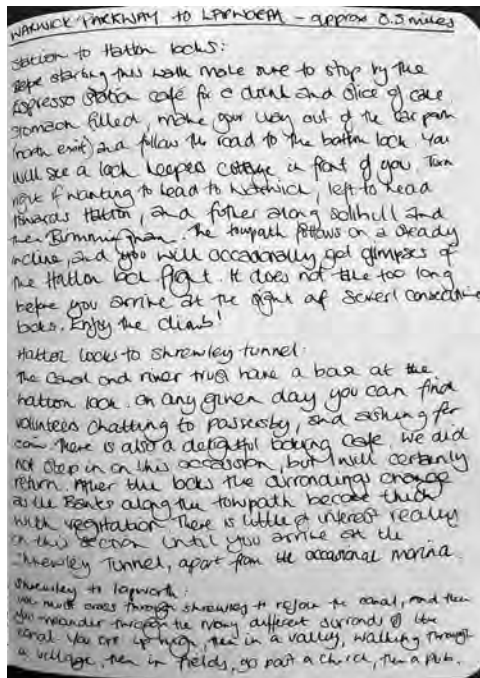 WARWICK PARKWAY TO LAPWORTH - approx 8.5 miles
Station to Hatton locks:
Before starting this walk make sure to stop by the
Espresso Station café for a drink and slice of cake
Stomach filled, make your way out of the car park
(north exit) and follow the road to the bottom lock. You
will see a lock keepers cottage in front of you. Turn
right if wanting to head to Warwick, left to head
towards Hatton, and further along solihull and
then Birmingham. The towpath follows on a steady
incline, and you will occasionally get glimpses of
the Hatton lock flight. It does not take too long
before you arrive at the sight of several consecutive
locks. Enjoy the climb!
Hatton locks to shrewley tunnel:
The canal and river trust have a base at the
hatton lock. On any given day you can find
volunteers chatting to passersby, and asking for
coin. There is also a delightful looking cafe. We did
not step in on this occassion, but I will certainly
return. After the locks the surrondings change
as the Banks along the towpath become thick
with vegitation. There is little of interest really
on this section until you arrive at the
Shrewley Tunnel, apart from the occasional marina.
Shrewley to Lapworth:
you must cross through shrewley to rejoin the canal, and then
you meander through the many different surronds of the
canal. You are up high, then in a valley, walking through
a village, then in fields, go past a church, then a pub.